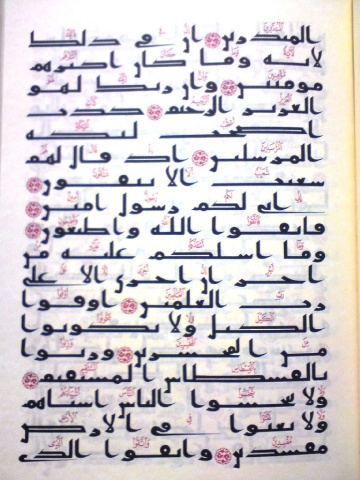 المنذرين ان في ذلك
لاية وما كان اكثرهم
مومنين وان ربك لهو
العزيز الرحيم كذب
اصحب ليكة
المرسلين اذ قال لهم
شعيب الا تتقون
اني لكم رسول امين
فاتقوا الله واطيعون
وما اسلكم عليه من
اجر ان اجري الا على
رب العلمين اوفوا
الكيل ولا تكونوا
من المخسرين وزنوا
بالقسطاس المستقيم
ولا تبخسوا الناس اشياهم
ولا تعثوا في الارض
مفسدين واتقوا الذي